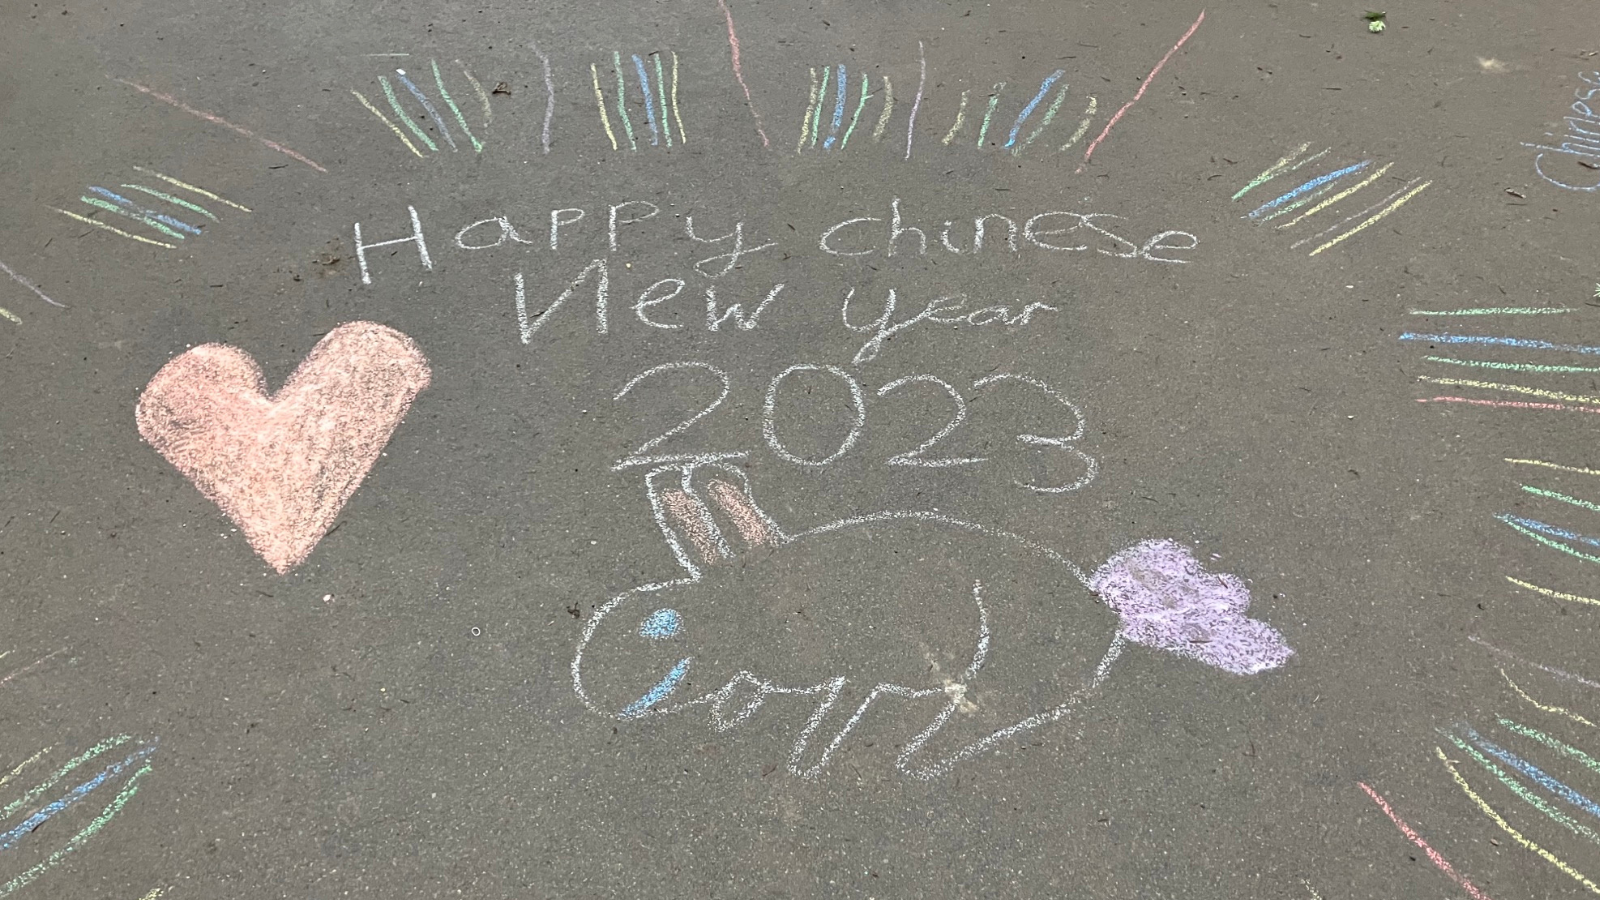 Happy chinese
New year
2023
Chinese